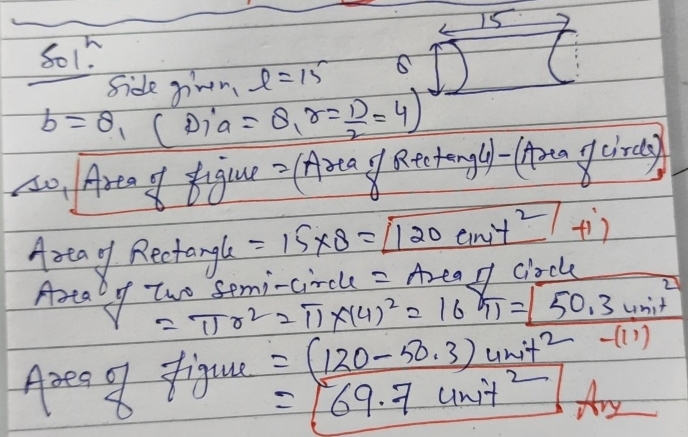 15
Solⁿ.
8
Side given, l = 15
b = 8, ( Dia = 8, r = D/2 = 4 )
so, Area of figure = (Area of Rectangle) - (Area of circle)
Area of Rectangle = 15×8 = 120 unit² -(i)
Area of Two Semi-circle = Area of Circle
= πr² = π×(4)² = 16π = 50.3 unit² -(ii)
Area of figure = (120 - 50.3) unit²
= 69.7 unit² Ans